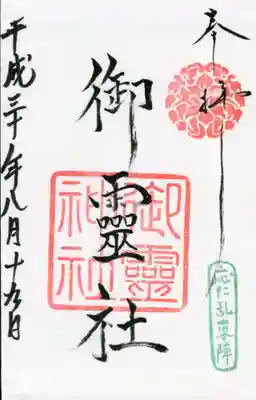 奉拝
應仁乱発陣
御靈社
御靈神社
平成三十年八月十五日